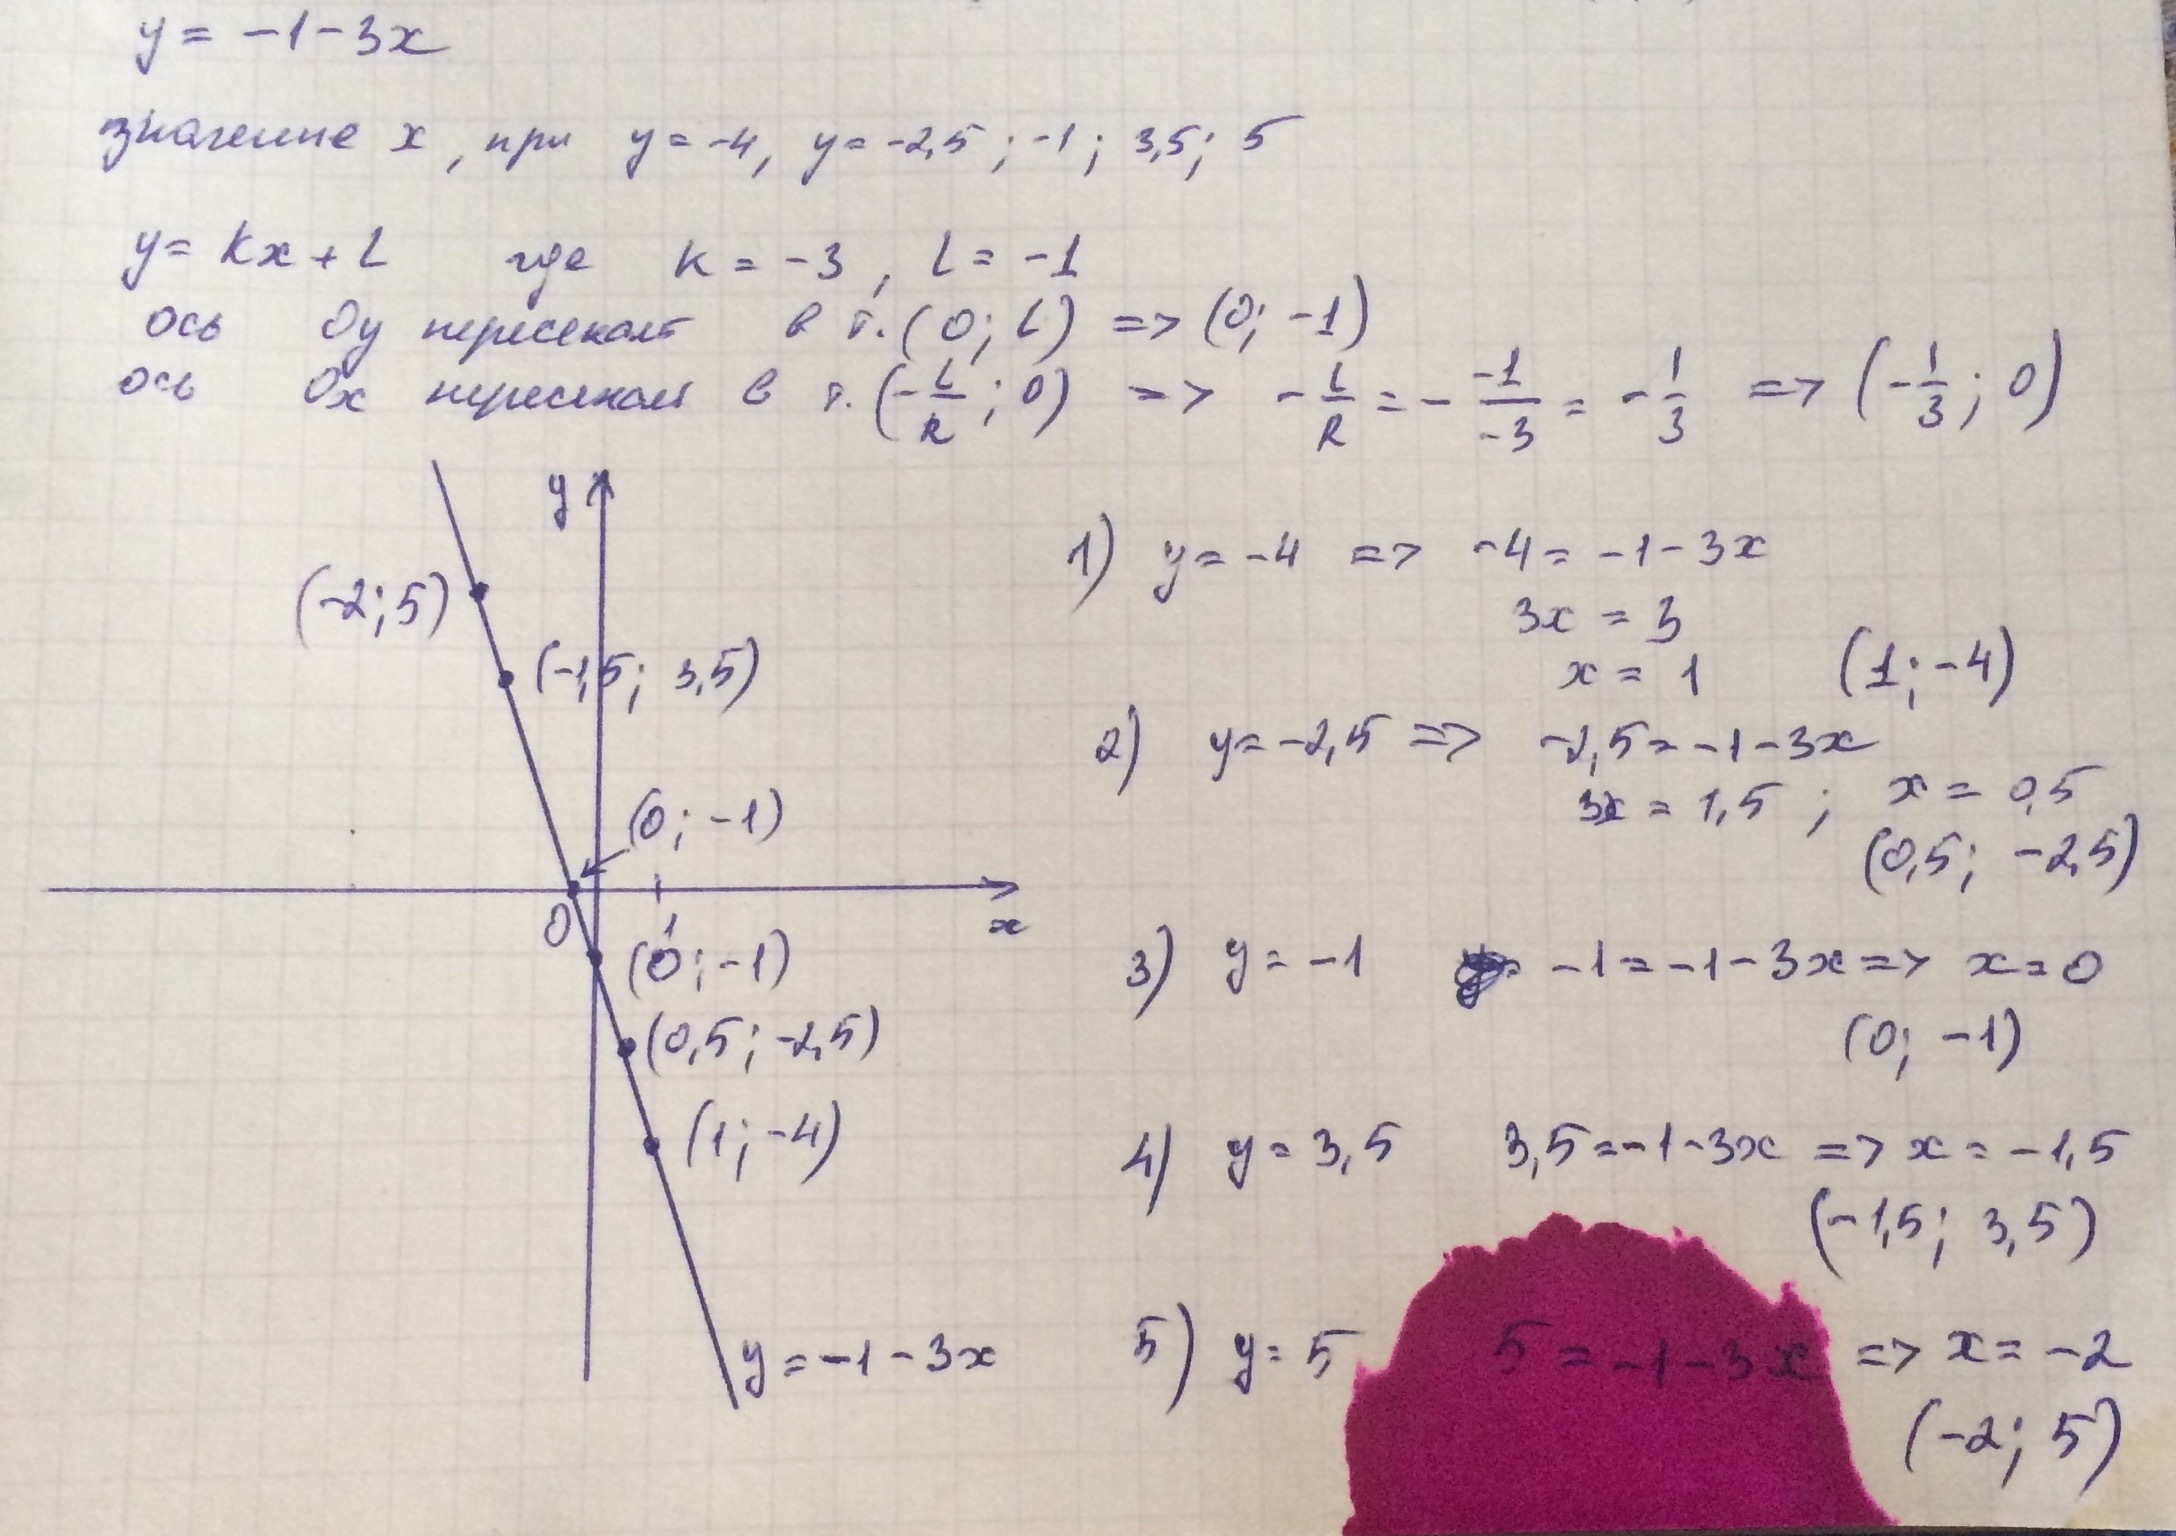 y = -1-3x
значение x, при y = -4, y = -2,5 ; -1 ; 3,5; 5
y = kx + L где k = -3, L = -1
ось Oy пересекает в т. (0; L) => (0; -1)
ось Ox пересекает в т. (-L/k ; 0) => -L/k = - -1/-3 = -1/3 => (-1/3 ; 0)
y
(-2; 5)
(-1,5; 3,5)
(0; -1)
O
1
x
(0; -1)
(0,5; -2,5)
(1; -4)
y = -1-3x
1) y = -4 => -4 = -1-3x
3x = 3
x = 1 (1; -4)
2) y = -2,5 => -2,5 = -1-3x
3x = 1,5 ; x = 0,5
(0,5; -2,5)
3) y = -1 -1 = -1-3x => x = 0
(0; -1)
4) y = 3,5 3,5 = -1-3x => x = -1,5
(-1,5; 3,5)
5) y = 5 5 = -1-3x => x = -2
(-2; 5)